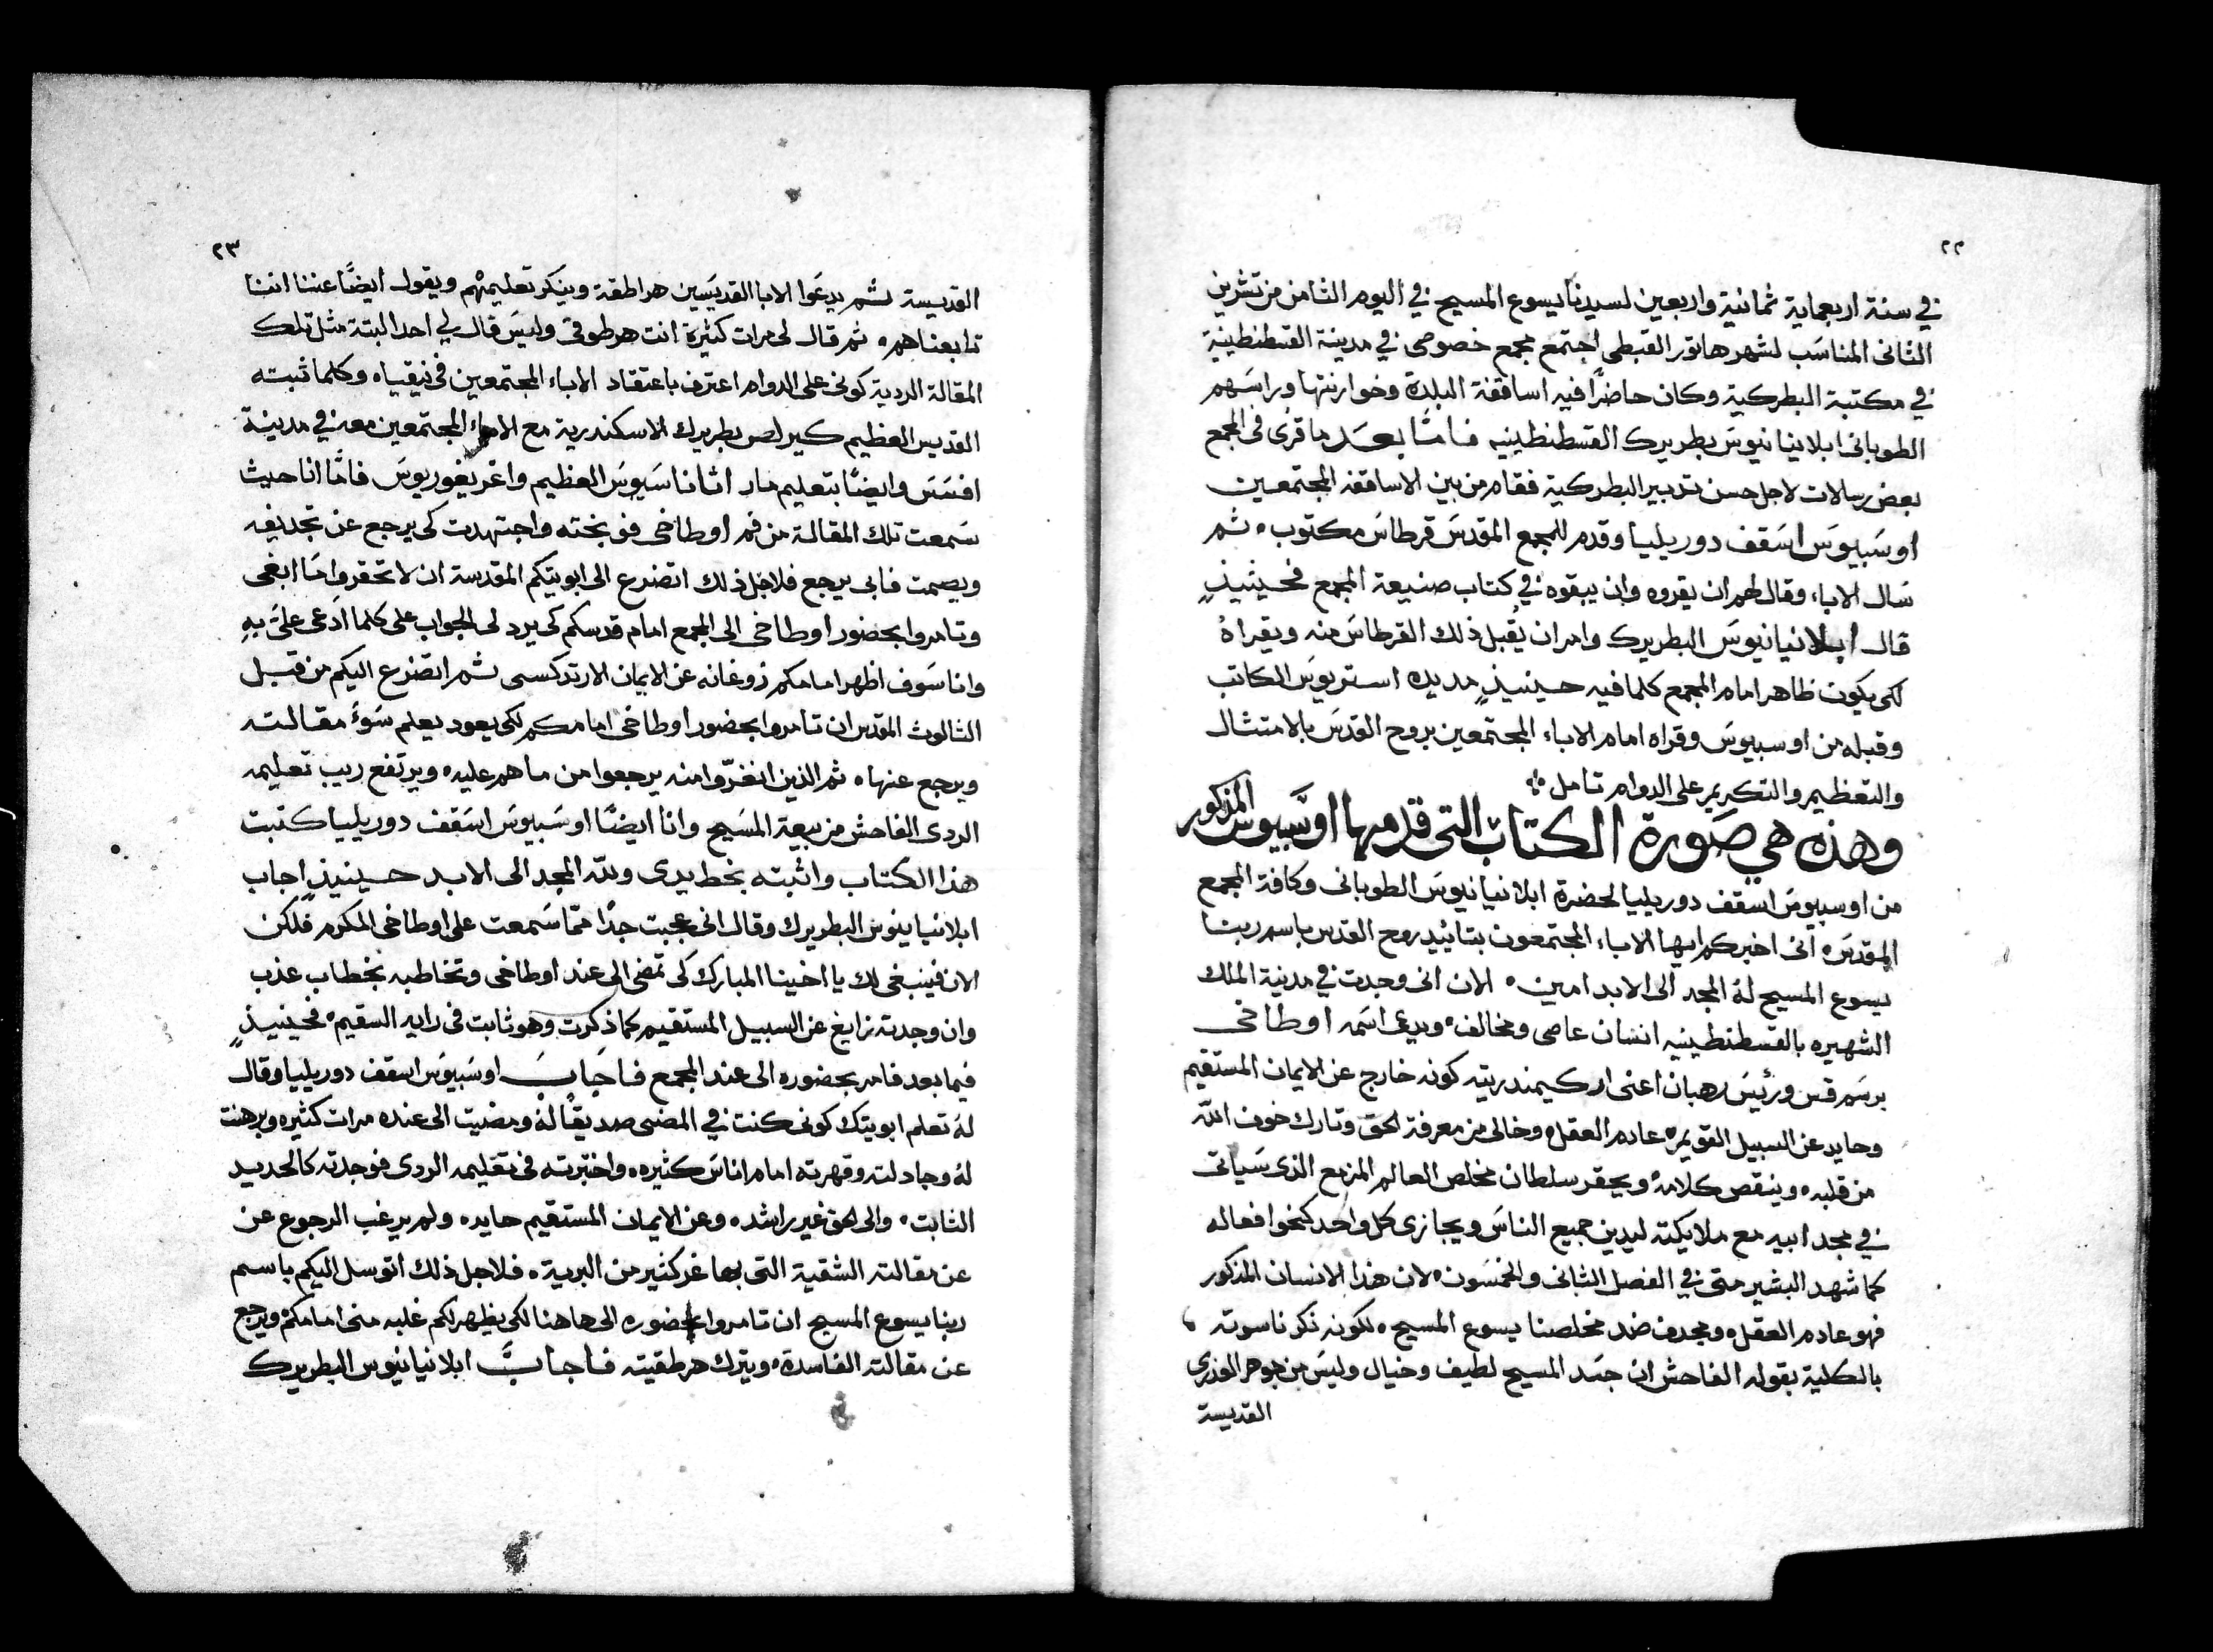 ٢٢
في سنة اربعماية ثمانية واربعين لسيدنا يسوع المسيح في اليوم الثامن من تشرين
الثانى المناسَب لشهر هاتور القبطى اجتمع مجمع خصوصى في مدينة القسطنطينية
في مكتبة البطركية وكان حاضرًا فيه اساقفة البلدة وخوارنتها وراسَهم
الطوبانى ابلانيانيوسَ بطريرك القسطنطينيه فامّا بعَد ما قرى فى المجمع
بعض رسالات لاجل حسن تدبير البطركية فقام من بين الاساقفه المجتمعين
اوسَبيوسَ اسَقف دوريليا وقدم للمجمع المقدسَ قرطاسَ مكتوب، ثم
سَال الاباء وقال لهم ان يقروه وان يبقوه في كتاب صنيعة المجمع فحينيذٍ
قال ابلانيانيوسَ البطريرك وامر ان يُقبل ذلك القرطاسَ منه ويقراهُ
لكى يكون ظاهر امام المجمع كلما فيه حينيذٍ مد يده استريوسَ الكاتب
وقبله من اوسبيوسَ وقراه امام الاباء المجتمعين بروح القدسَ بالامتثال
والتعظيم والتكريم على الدوام تامل
وهذه هي صَورة الكتاب التى قدمها اوسَبيوسَ المذكور
من اوسبيوسَ اسقف دوريليا لحضرة ابلانيانيوسَ الطوبانى وكافة المجمع
المقدسَ، انى اخبركم ايها الاباء المجتمعون بتاييد روح القدس باسم ربنا
يسوع المسيح لهُ المجد الى الابد امين، الان انى وجدت في مدينة الملك
الشهيره بالقسطنطينيه انسان عاصى ومخالف، ويدعى اسَمه اوطاخى
برسَم قس ورئيسَ رهبان اعنى ارکيمندريته كونه خارج عن الايمان المستقيم
وحايد عن السبيل القويم، عادم العقل، وخالى من معرفة الحق وتارك خوف الله
من قلبه، وينقص كلامهُ ويحقر سلطان مخلص العالم المزمع الذى سَياتى
في مجد ابيه مع ملايكته ليدين جميع الناسَ ويجازى كل واحد كنحوا فعاله
كما شهد البشير متى في الفصل الثانى والخمسَون، لان هذا الانسان المذكور
فهو عادم العقل، ومجدف ضد مخلصنا يسوع المسيح، لكونه نكر ناسوته
بالكلية بقوله الفاحش ان جسَد المسيح لطيف وخيال وليسَ من جوهر العذرى
القديسة
٢٣
القديسة ثم يدعَوا الابا القديسَين هراطقة وينكر تعليمهْم ويقول ايضًا عننا اننا
تابعناهم، ثم قال لى مرات كثيرة انت هرطوقى وليسَ قال لي احد البتة مثل تلك
المقالة الردية كونى على الدوام اعترف باعتقاد الاباء المجتمعين في نيقياه وكلما ثبته
القديس العظيم كيرلص بطريرك الاسكندرية مع الاباء المجتمعين معه في مدينة
افسَسَ وايضًا بتعليم مار اثاناسَيوسَ العظيم واغريغوريوسَ فامّا انا حيث
سَمعت تلك المقالة من فم اوطاخى فوبخته واجتهدت كى يرجع عن تجديفه
ويصمت فابى يرجع فلاجل ذلك اتضرع الى ابويتكم المقدسة ان لا تحقروا ما ابغى
وتامروا بحضور اوطاخى الى المجمع امام قدسكم كى يرد لى الجواب على كلما ادعى علىَ بهِ
وانا سَوف اظهر امامكم زوغانه عن الايمان الارتدكسى ثم اتضرع اليكم من قبل
الثالوث المقدس ان تامروا بحضور اوطاخى امامكم لكى يعود يعلم سَوءَ مقالته
ويرجع عنها، ثم الذين انغرّوا منه يرجعوا من ما هم عليه، ويرتفع ريب تعليمه
الردى الفاحش من بيعة المسَيح وانا ايضًا اوسَبيوسَ اسَقف دوريليا كتبت
هذا الكتاب واثبته بخط يدى ولله المجد الى الابد حينيذٍ اجاب
ابلانيانيوس البطريرك وقال انى عجبت جدًا ممّا سَمعت على اوطاخى المكرم فلكن
الان فينبغى لك يا اخينا المبارك كى تمضى الى عند اوطاخى وتخاطبه بخطاب عذب
وان وجدته زايغ عن السبيل المستقيم كما ذكرت وهو ثابت فى رايه السقيم، فحينيذٍ
فيما بعد فامر بحضوره الى عند المجمع فاجَابَ اوسَبيوسَ اسقف دوريليا وقال
لهُ تعلم ابويتك كونى كنت في المضى صديقًا لهُ ومضيت الى عنده مرات كثيره وبرهنت
لهُ وجادلته وقهرته امام اناسَ كثيره، واختبرته فى تعليمه الردى فوجدته كالحديد
الثابت، والى الحق غير راشد، وعن الايمان المستقيم حايد، ولم يرغب الرجوع عن
عن مقالته الشقية التى بها غر كثير من البرية، فلاجل ذلك اتوسل اليكم باسم
ربنا يسوع المسيح ان تامروا بحضوره الى هاهنا لكى يظهر لكم غلبه منى امامكمْ ويرجع
عن مقالته الفاسدة، ويترك هرطقيته فاجابَّ ابلانيانيوس البطريرك